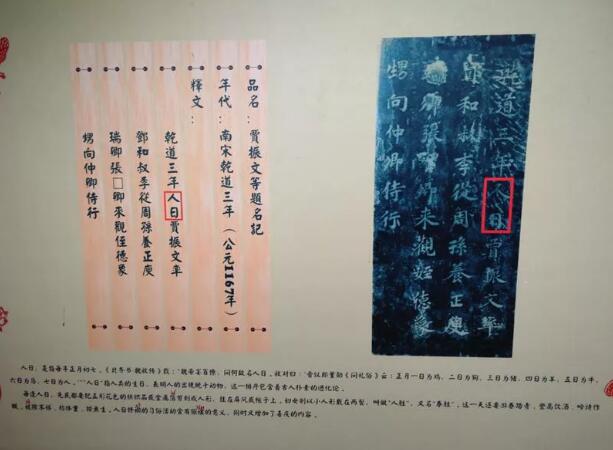 品名：賈振文等題名記
年代：南宋乾道三年（公元1167年）
釋文：
乾道三年人日賈振文率
鄧和叔李從周孫養正庾
瑞卿張□卿來觀侄德象
甥向仲卿侍行
乾道三年人日賈振文率
鄧和叔李從周孫養正庾
瑞卿張 卿来觀姪德象
甥向仲卿侍行
人日，是指每年正月初七。《北齐书·魏收传》载："魏帝宴百僚，问何故名人日，收对曰："晋议郎董勋《问礼俗》云：正月一日为鸡，二日为狗，三日为猪，四日为羊，五日为牛，
六日为马，七日为人。""人日"指人类的生日，表明人的出现晚于动物，这一排序包含着古人朴素的进化论。
每逢人日，先民都要把五彩花色的丝织品或金箔 剪刻成人形，挂在屏风或帐子上，妇女则以小人形戴在两鬓，叫做"人胜"，又名"春胜"，这一天还要游春踏青，登高饮酒，吟诗作
赋，被除不祥，初体重，探蚕生，人日 的习俗活动富有 的意义，同时又增加了喜庆的内容。